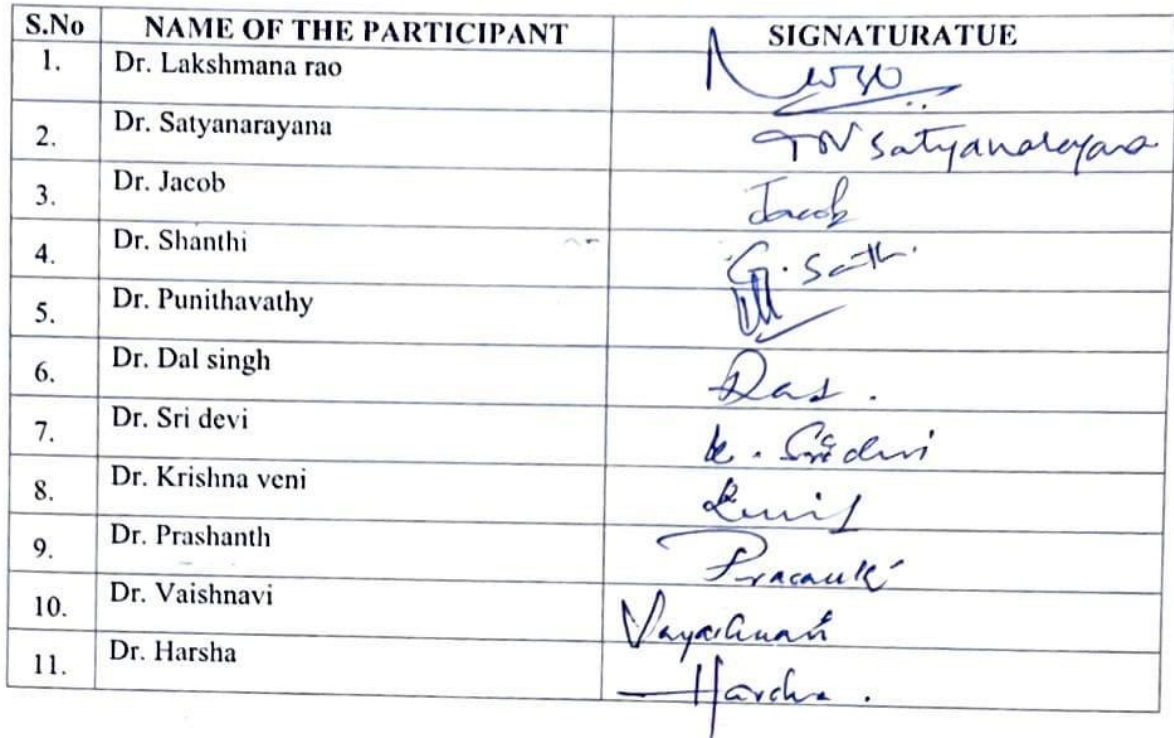 S.No NAME OF THE PARTICIPANT SIGNATURATUE
1. Dr. Lakshmana rao
2. Dr. Satyanarayana TN Satyanarayana
3. Dr. Jacob Jacob
4. Dr. Shanthi G.
5. Dr. Punithavathy
6. Dr. Dal singh
7. Dr. Sri devi k. Sridevi
8. Dr. Krishna veni
9. Dr. Prashanth
10. Dr. Vaishnavi
11. Dr. Harsha Harsha.